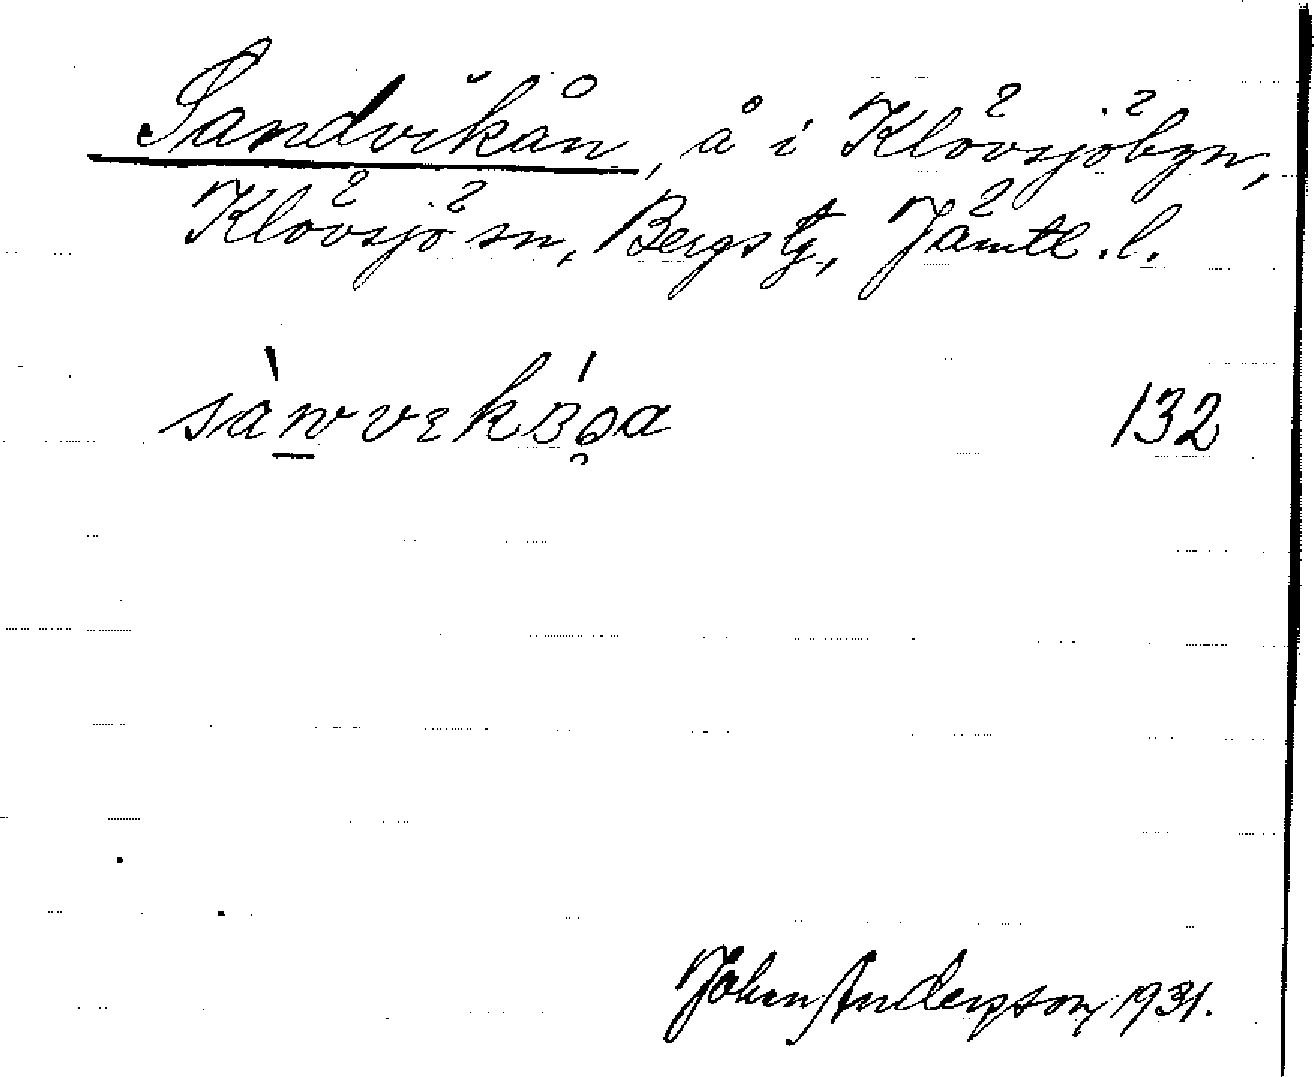 Sandvikån, å i Klövsjöbyn,
Klövsjö sn, Bergs tg, Jämtl. l.
132
John Andersson, 1931.